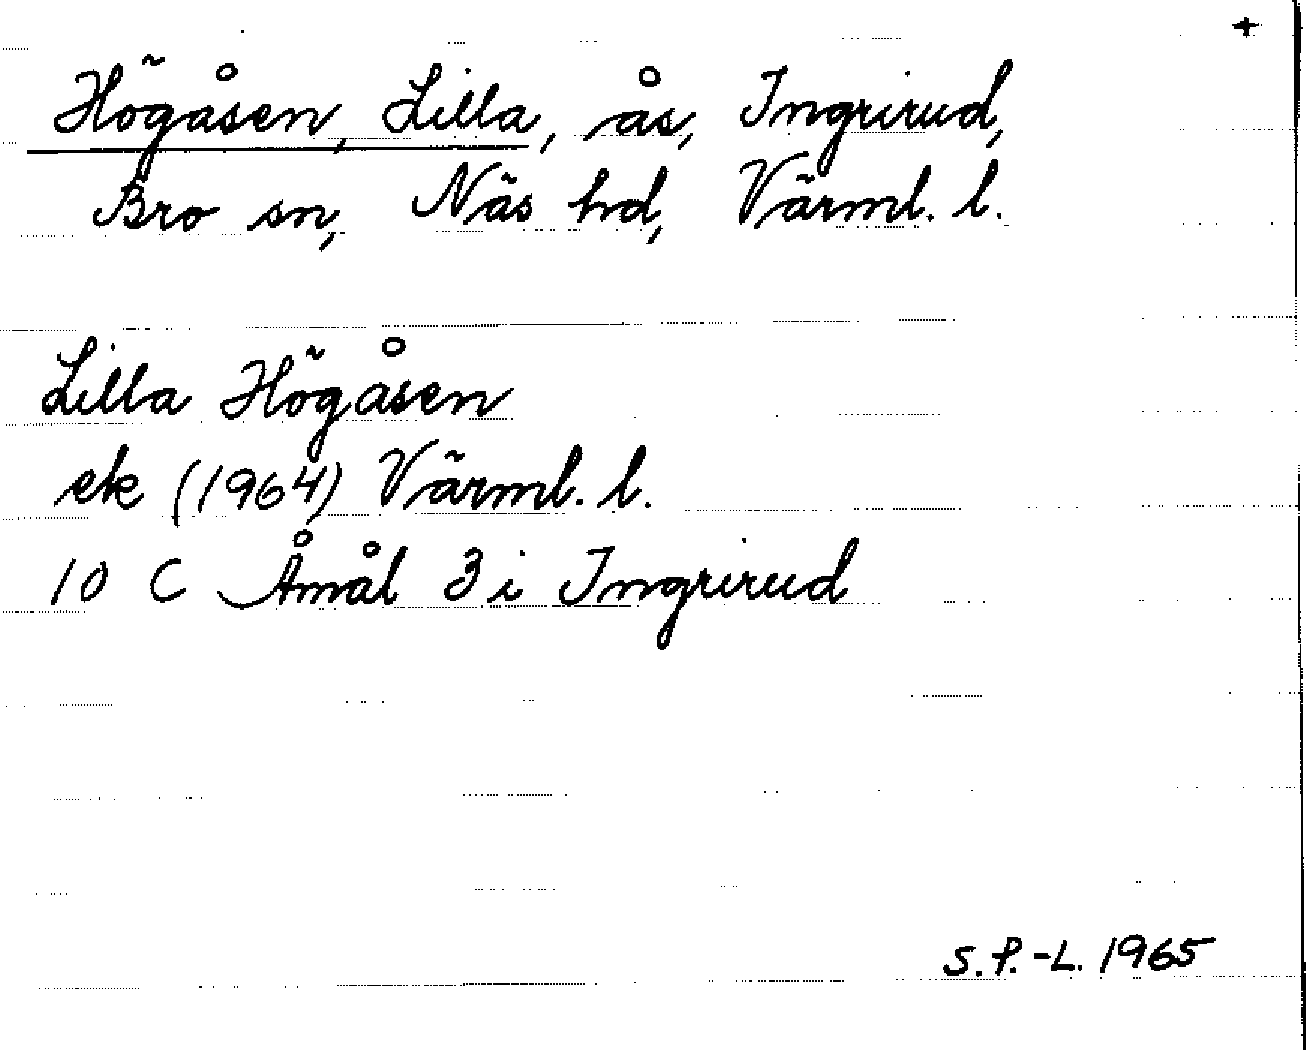 +
Högåsen, Lilla, ås, Ingrirud,
Bro sn, Näs hd, Värml. l.
Lilla Högåsen
ek (1964) Värml. l.
10 C Åmål 3 i Ingrirud
S.P.-L. 1965